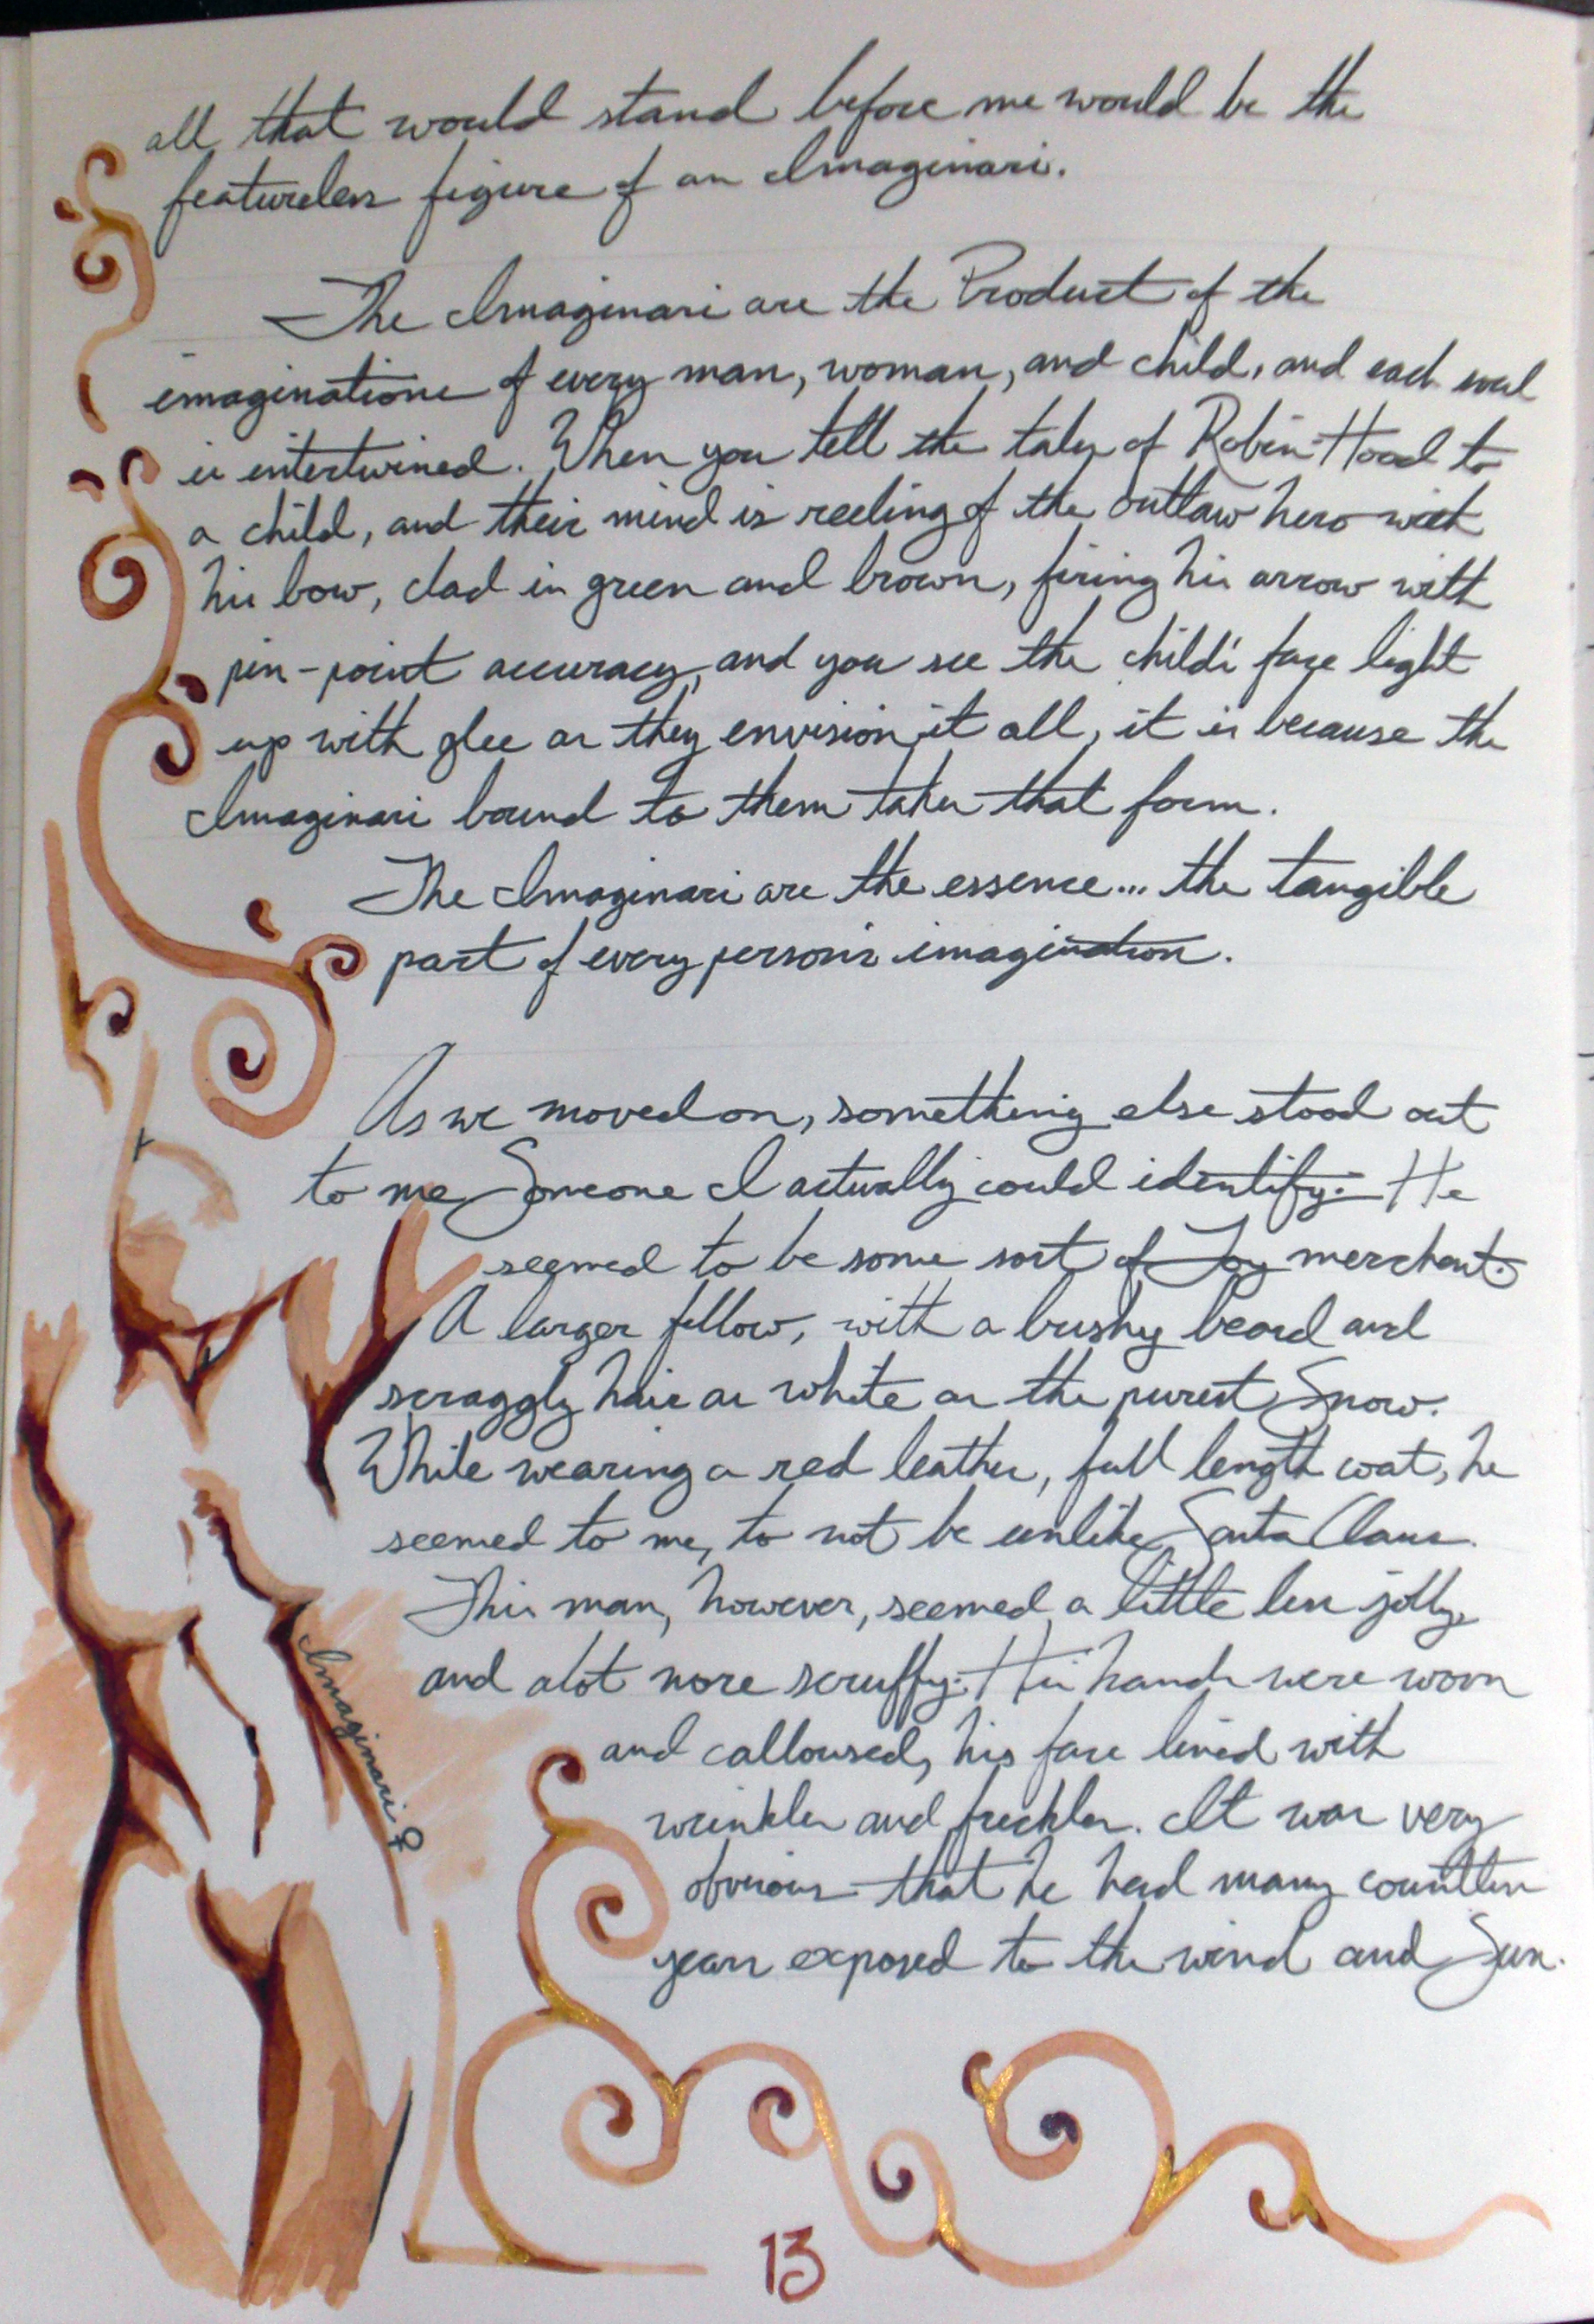 all that would stand before me would be the
featureless figure of an Imaginari.
The Imaginari are the Product of the
imaginations of every man, woman, and child, and each soul
is intertwined. When you tell the tales of Robin Hood to
a child, and their mind is reeling of the outlaw hero with
his bow, clad in green and brown, firing his arrow with
pin-point accuracy, and you see the child's face light
up with glee as they envision it all, it is because the
Imaginari bound to them takes that form.
The Imaginari are the essence... the tangible
part of every person's imagination.
As we moved on, something else stood out
to me Someone I actually could identify. He
seemed to be some sort of Toy merchant.
A larger fellow, with a bushy beard and
scraggly hair as white as the purest Snow.
While wearing a red leather, full length coat, he
seemed to me, to not be unlike Santa Claus.
This man, however, seemed a little less jolly,
and alot more scruffy. His hands were worn
and calloused, his face lined with
wrinkles and freckles. It was very
obvious that he had many countless
years exposed to the wind and Sun.
Imaginari ♀
13